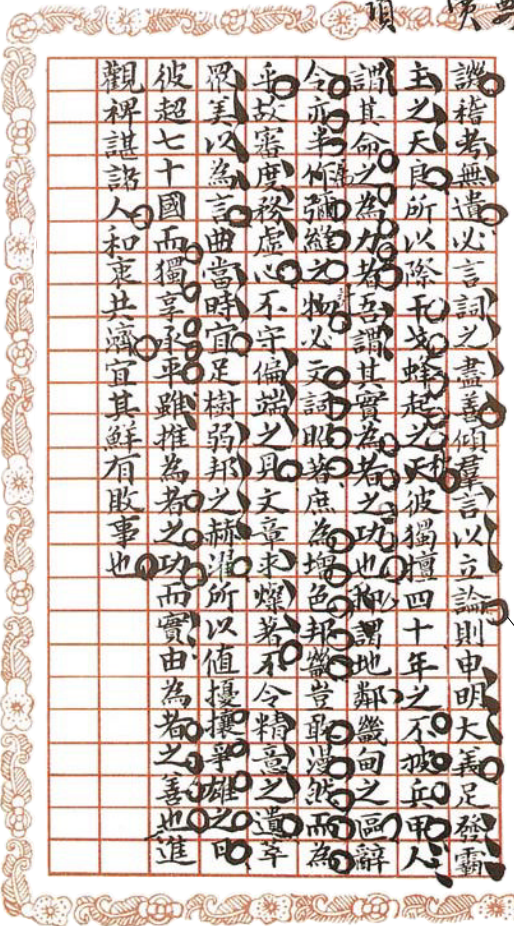 項
謨稽考無遺必言詞之盡善傾羣言以立論則申明大義足發霸
主之天良所以際干戈蜂起之天秋彼獨擅四十年之不被兵甲人
謂其命之為力者吾謂其實為者之功也抑謂地鄰畿甸之區辭
令亦半何彌縫之物必文詞昭著庶為增色邦畿豈敢漫然而為
乎故審度務虛心不守偏端之見文章求燦著不令精意之遺萃
眾美以為言曲當時宜足樹弱邦之赫濯所以值擾攘爭雄之日
彼超七十國而獨享承平雖推為者之功而實由為者之善也進
觀裨諶諸人和衷共濟宜其鮮有敗事也